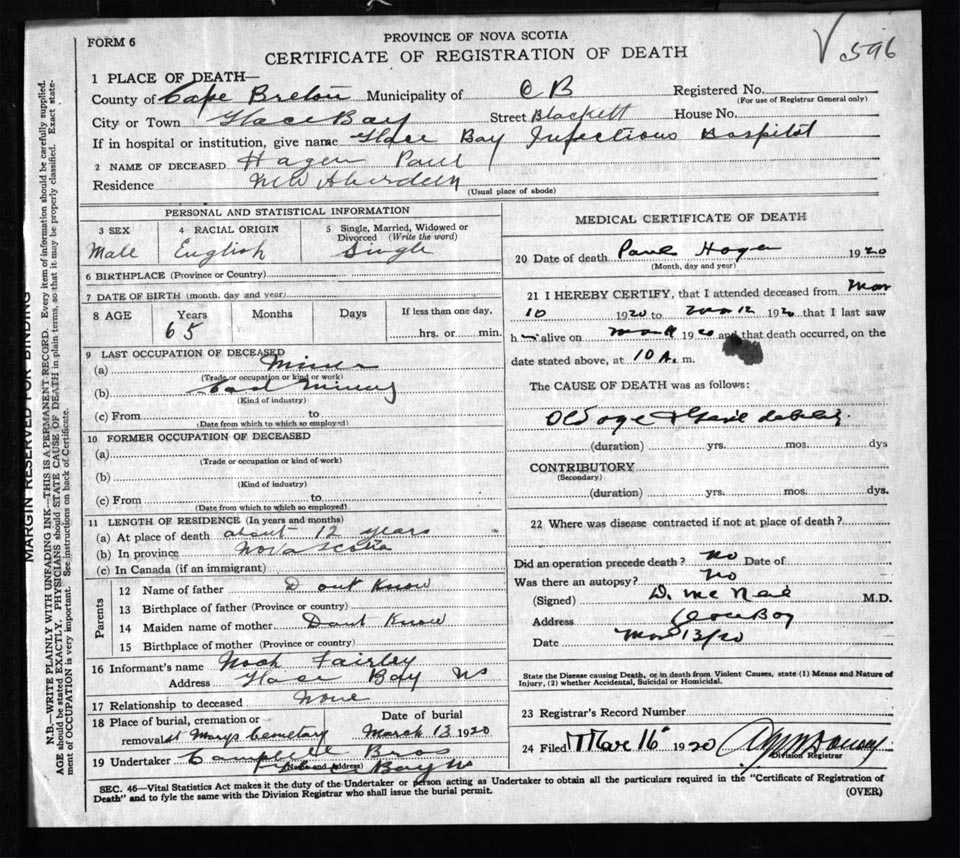 FORM 6
PROVINCE OF NOVA SCOTIA
CERTIFICATE OF REGISTRATION OF DEATH
596
1 PLACE OF DEATH—
County of Cape Breton Municipality of C B Registered No.
(For use of Registrar General only)
City or Town Glace Bay Street Blackett House No.
If in hospital or institution, give name Glace Bay Infectious Hospital
2 NAME OF DECEASED Hagen Paul
Residence New Aberdeen
(Usual place of abode)
PERSONAL AND STATISTICAL INFORMATION
3 SEX 4 RACIAL ORIGIN 5 Single, Married, Widowed or Divorced (Write the word)
Male English Single
6 BIRTHPLACE (Province or Country)
7 DATE OF BIRTH (month, day and year)
8 AGE Years Months Days If less than one day,
65 hrs. or min.
9 LAST OCCUPATION OF DECEASED
(a) Miner
(Trade or occupation or kind or work)
(b) Coal Mining
(Kind of industry)
(c) From to
(Date from which to which so employed)
10 FORMER OCCUPATION OF DECEASED
(a)
(Trade or occupation or kind of work)
(b)
(Kind of industry)
(c) From to
(Date from which to which so employed)
11 LENGTH OF RESIDENCE (In years and months)
(a) At place of death about 12 years
(b) In province Nova Scotia
(c) In Canada (if an immigrant)
Parents
12 Name of father Dont Know
13 Birthplace of father (Province or country)
14 Maiden name of mother Dont Know
15 Birthplace of mother (Province or country)
16 Informant's name Noah Fairley
Address Glace Bay NS
17 Relationship to deceased None
18 Place of burial, cremation or Date of burial
removal St Marys Cemetary March 13 1920
19 Undertaker Campbell Bros
(Name and address) Glace Bay NS
MEDICAL CERTIFICATE OF DEATH
20 Date of death Paul Hogen 1920
(Month, day and year)
21 I HEREBY CERTIFY, that I attended deceased from Mar
10 1920 to Mar 12 1920 that I last saw
h alive on 1920 and that death occurred, on the
date stated above, at 10 A. m.
The CAUSE OF DEATH was as follows:
Old age
(duration) yrs. mos. dys
CONTRIBUTORY
(Secondary)
(duration) yrs. mos. dys.
22 Where was disease contracted if not at place of death?
Did an operation precede death? No Date of
Was there an autopsy? No
(Signed) D. McNeil M.D.
Address Glace Bay
Date Mar 13/20
State the Disease causing Death, or in death from Violent Causes, state (1) Means and Nature of
Injury, (2) whether Accidental, Suicidal or Homicidal.
23 Registrar's Record Number
24 Filed Mar 16 1920
Division Registrar
SEC. 46—Vital Statistics Act makes it the duty of the Undertaker or person acting as Undertaker to obtain all the particulars required in the "Certificate of Registration of
Death" and to fyle the same with the Division Registrar who shall issue the burial permit.
(OVER)
MARGIN RESERVED FOR BINDING
N.B.—WRITE PLAINLY WITH UNFADING INK—THIS IS A PERMANENT RECORD. Every item of information should be carefully supplied.
AGE should be stated EXACTLY. PHYSICIANS should STATE CAUSE OF DEATH in plain terms, so that it may be properly classified. Exact state-
ment of OCCUPATION is very important. See instructions on back of Certificate.